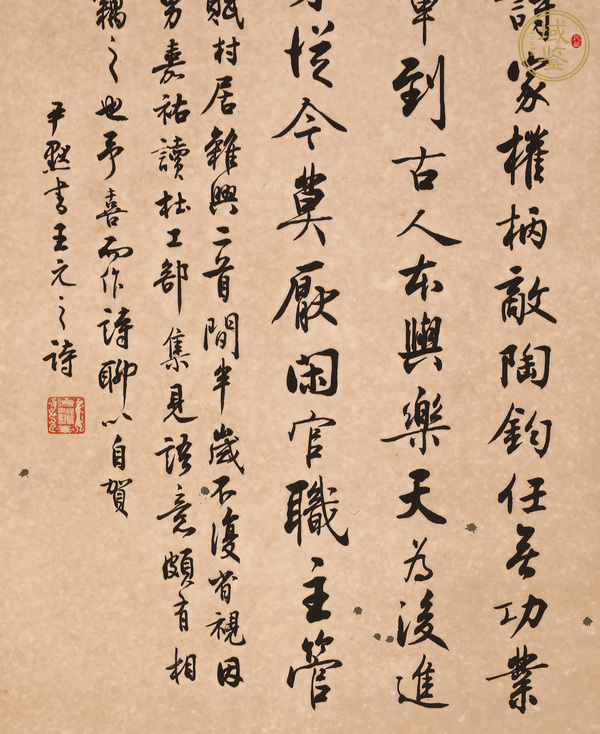 詩家權柄敵陶鈞任無功業
章到古人本與樂天為後進
身從今莫厭閑官職主管
賦村居雜興二首間半歲不復省視因
男嘉祐讀杜工部集見語意頗有相
竊之也予喜而作詩聊以自賀
尹默書王元之詩
域鉴